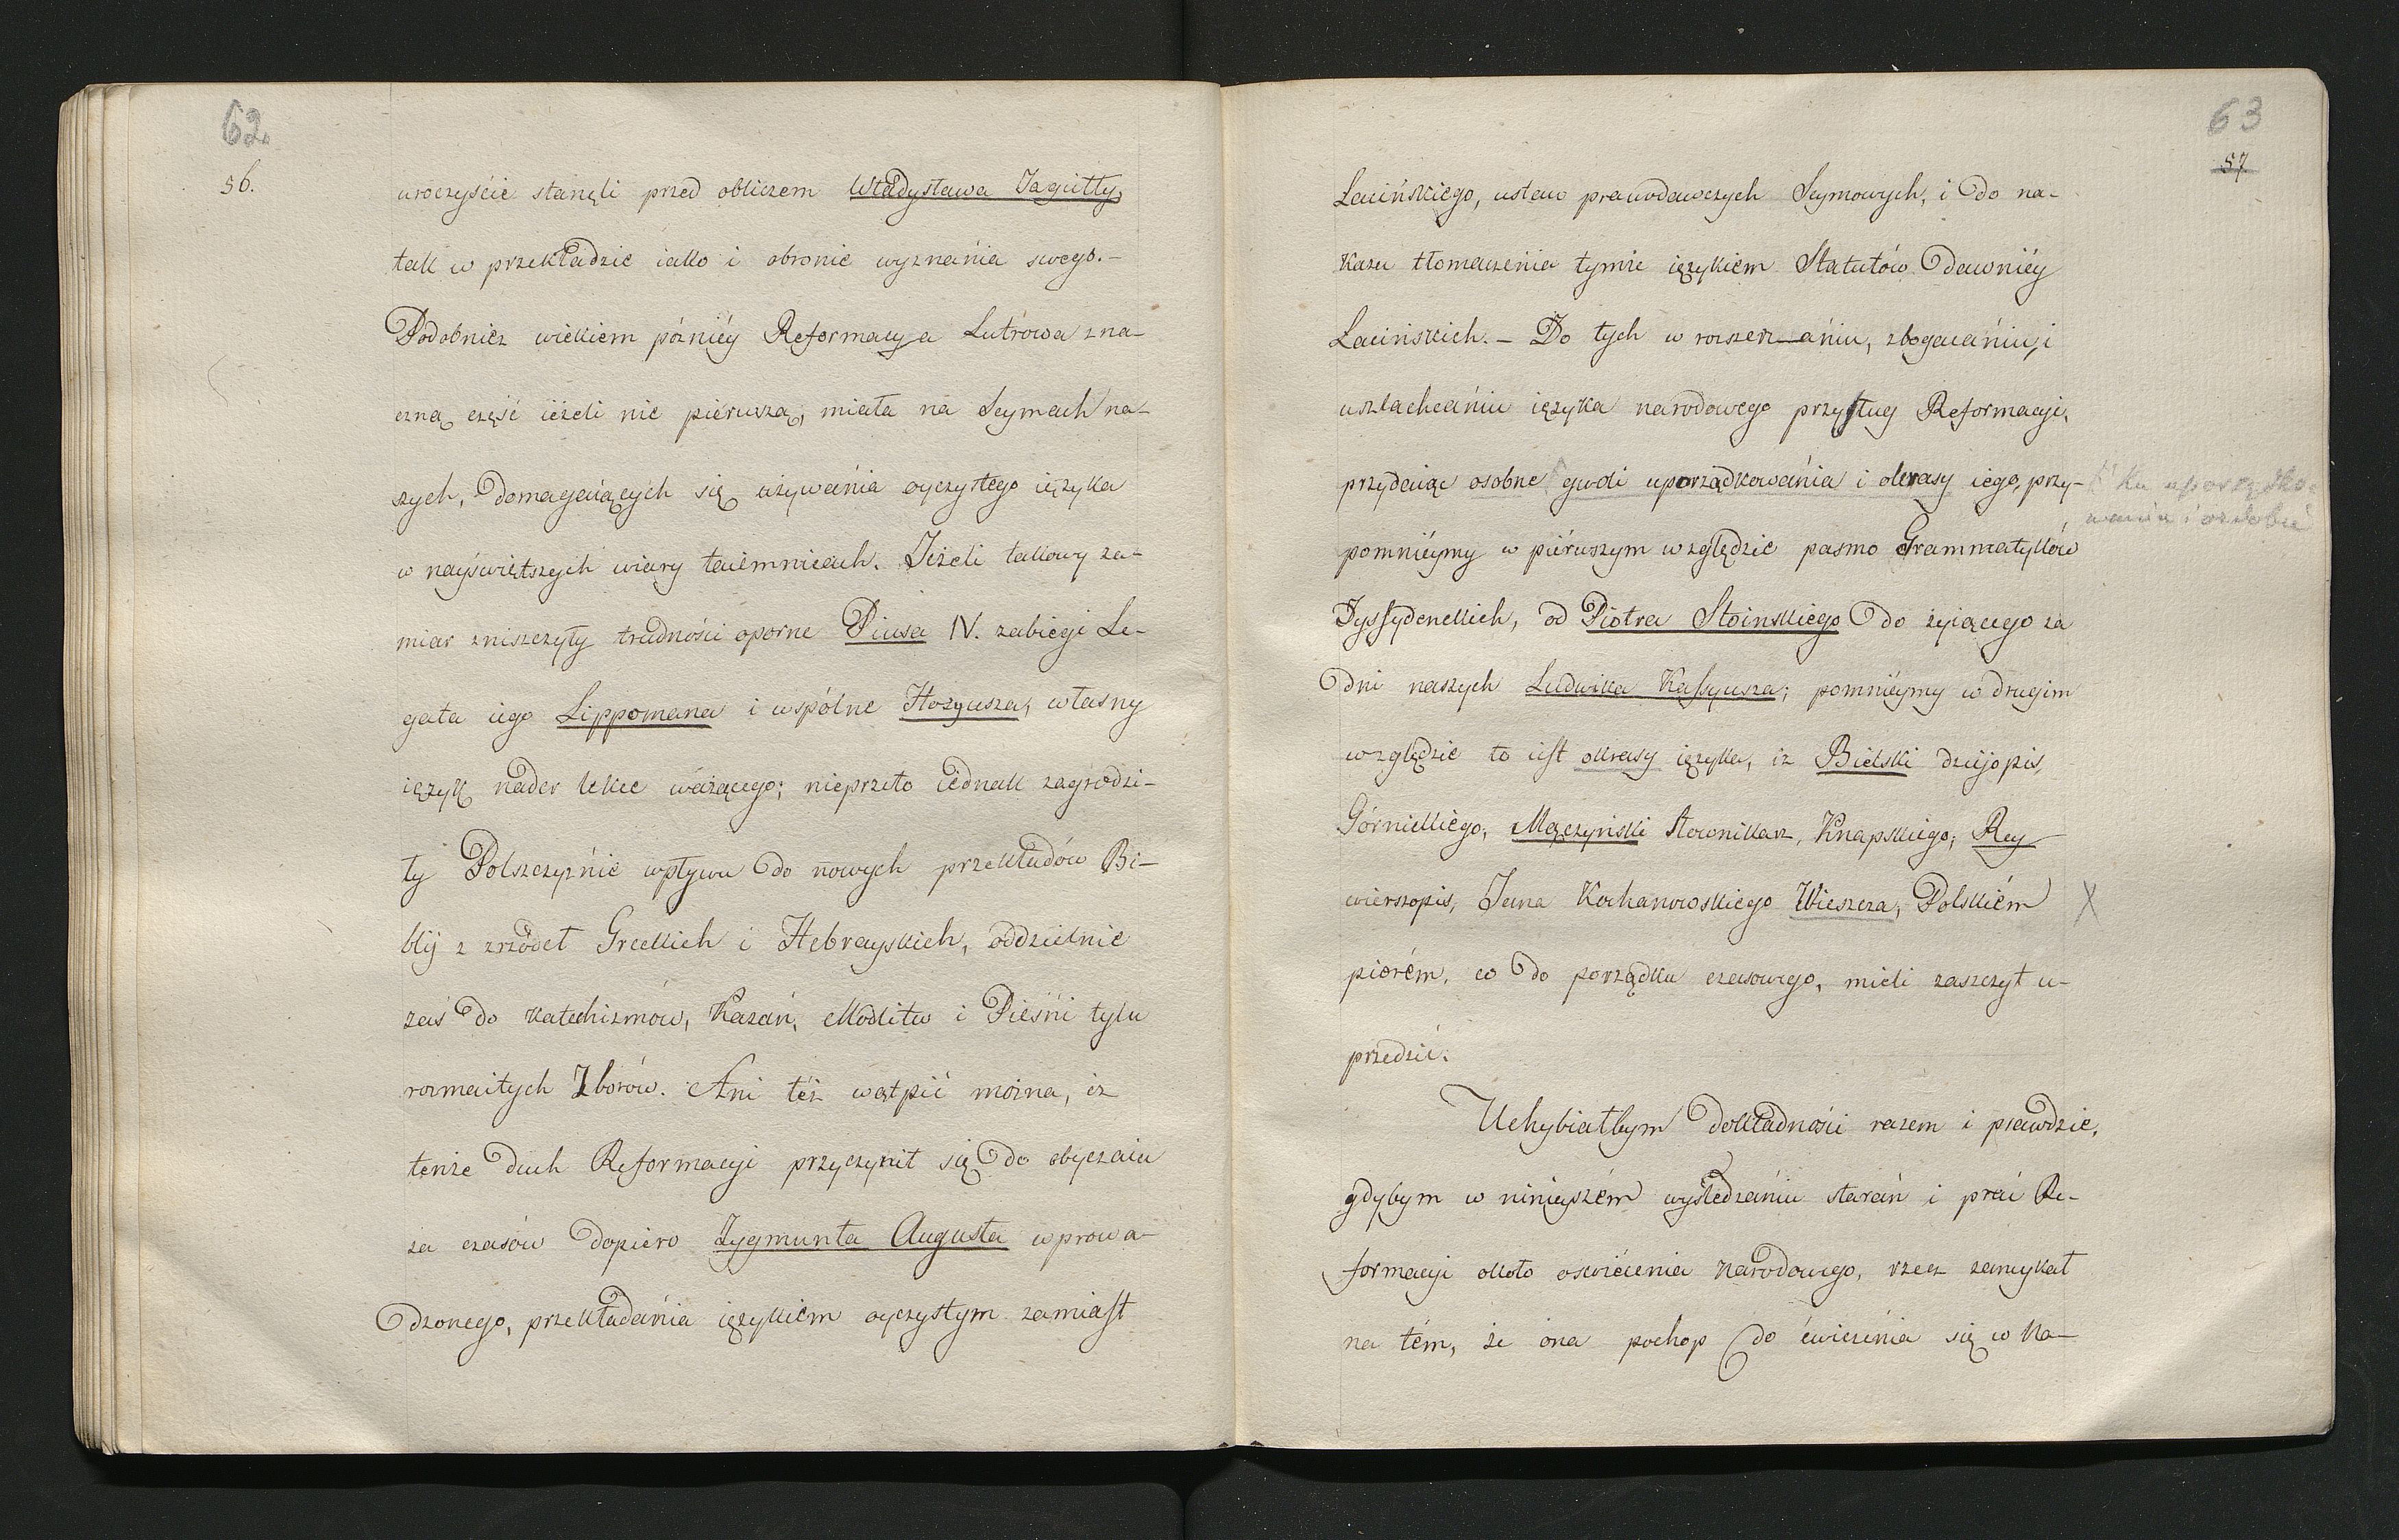 62.
56.
uroczyście stanęli przed obliczem Władysława Jagiełły,
tak w przekładzie iako i obronie wyznánia swego.—
Podobnież wiekiem póznièy Reformacya Lutrowa zna-
czną część ieżeli nie pierwszą, miała na Seymach na-
szych, domagaiących się używánia oyczystego ięzyka
w nayświętszych wiary taiemnicach. Jeżeli takowy za-
miar zniszczyły trudności oporne Piusa IV. zabiegi Le-
gata iego Lippomana i wspólne Hozyusza, własny
ięzyk nader lekce ważącego; nieprzeto iednak zagrodzi-
ły Polszczyznie wpływu do nowych przekładów Bi-
blij z zrzódeł Greckich i Hebrayskich, oddzielnie
zaś do Katechizmów, Kazań, Modlitw i Pieśni tylu
rozmaitych Zborów. Ani tèż wątpić można, iż
tenże duch Reformacyi przyczynił się do obyczaiu
za czasów dopiero Zygmunta Augusta wprowa-
dzonego, przekładánia ięzykièm oyczystym zamiast
63
57
Łacińskiego, ustaw prawodawczych Seymowych, i do na-
kazu tłomaczenia tymże ięzykièm Statutów dawnièy
Łacińskich.— Do tych w rozszerz—ániu, zbogacániu, i
uszlachcániu ięzyka narodowego przysług Reformacyi,
przydaiąc osobne gwoli uporządkowánia i okrasy iego, przy-
Ku uporządko-
waniu i ozdobie
pomnièymy w pièrwszym względzie pasmo Grammatyków
Dyssydenckich, od Piotra Stoinskiego do żyiącego za
dni naszych Ludwika Kassyusza; pomnièymy w drugim
względzie to iest okrasy ięzyka, iż Bielski dzieiopis,
Górnickiego, Mączyński słownikarz, Knapskiego; Rey
wierszopis, Jana Kochanowskiego Wieszcza, Polskièm
X
piorèm, co do porządku czasowego, mieli zaszczyt u-
przedzić.
Uchybiałbym dokładności razem i prawdzie,
gdybym w ninieyszèm wyśledzániu starań i prac Re-
formacyi około oświecenia Narodowego, rzecz zamykał
na tém, że ona pochop do ćwiczenia się w Na-